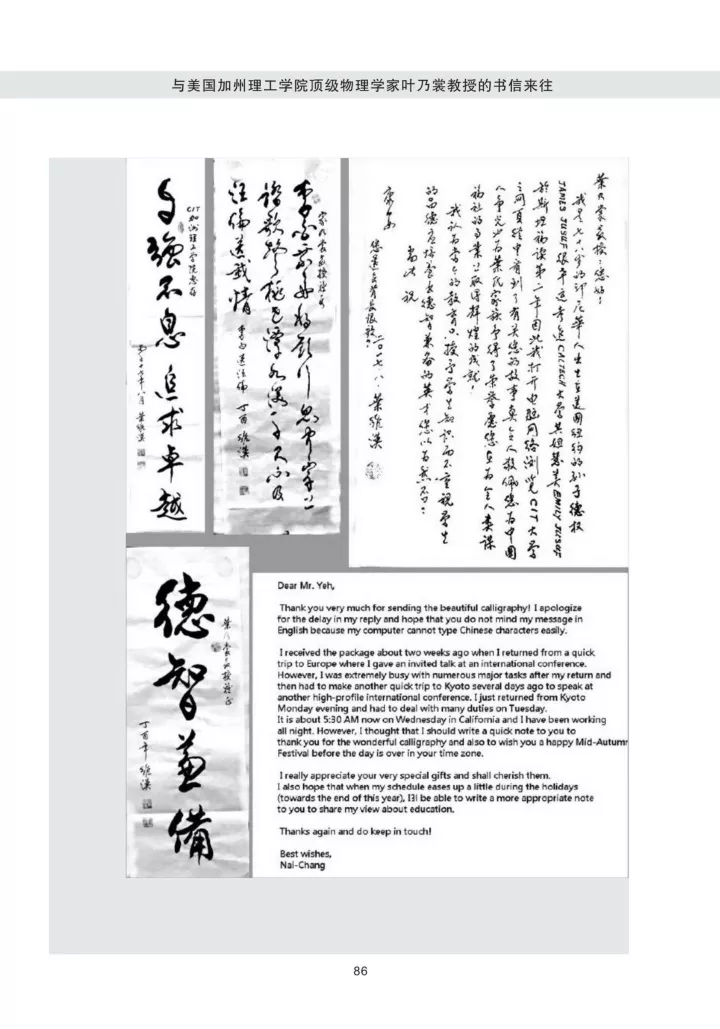 与美国加州理工学院顶级物理学家叶乃裳教授的书信来往
CIT加州理工学院惠存
自强不息 追求卓越
葉維漢
李白乘舟将欲行忽聞岸上
踏歌聲桃花潭水深千尺不及
汪倫送我情
李白送汪伦 丁酉 維漢
葉乃裳教授：您好！
我是七十八岁的印尼華人出生在美國紐約的孙子德权
JAMES JUSUF 很幸运考到 CALTECH 大學其姐慧美 EMILY JUSUF
於斯坦福读第二年因此我打开电脑网络浏览 CIT 大學
之网頁從中看到了有关您的故事真令人敬佩您为中國
人争光也为葉氏家族争得了荣誉愿您在为全人类谋
福祉的事業上取得辉煌的成就！
我认为当今的教育只授予学生知识而不重視學生
的品德应培育出德智兼备的英才您以为然否？
耑此 祝
康安
二〇一七、八、葉維漢
德智兼備
丁酉年 維漢
Dear Mr. Yeh,
Thank you very much for sending the beautiful calligraphy! I apologize
for the delay in my reply and hope that you do not mind my message in
English because my computer cannot type Chinese characters easily.
I received the package about two weeks ago when I returned from a quick
trip to Europe where I gave an invited talk at an international conference.
However, I was extremely busy with numerous major tasks after my return and
then had to make another quick trip to Kyoto several days ago to speak at
another high-profile international conference. I just returned from Kyoto
Monday evening and had to deal with many duties on Tuesday.
It is about 5:30 AM now on Wednesday in California and I have been working
all night. However, I thought that I should write a quick note to you to
thank you for the wonderful calligraphy and also to wish you a happy Mid-Autumn
Festival before the day is over in your time zone.
I really appreciate your very special gifts and shall cherish them.
I also hope that when my schedule eases up a little during the holidays
(towards the end of this year), I3l be able to write a more appropriate note
to you to share my view about education.
Thanks again and do keep in touch!
Best wishes,
Nai-Chang
86